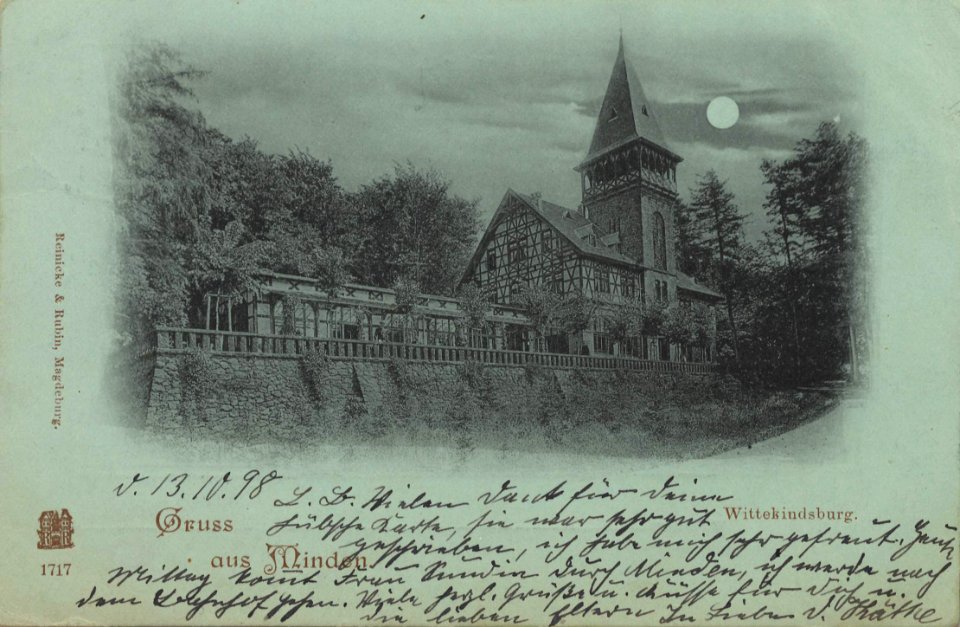 Reinicke & Rubin, Magdeburg.
d. 13.10.98
L. B. Vielen Dank für Deine
hübsche Karte, sie war sehr gut
geschrieben, ich habe mich sehr gefreut. Heute
Mittag komt Frau Sundin durch Minden, ich werde nach
dem Bahnhof gehen. Viele hrzl. Grüße u. Küsse für Dich u.
die lieben Eltern In Liebe d. Käthe
Gruss
aus Minden.
Wittekindsburg.
1717